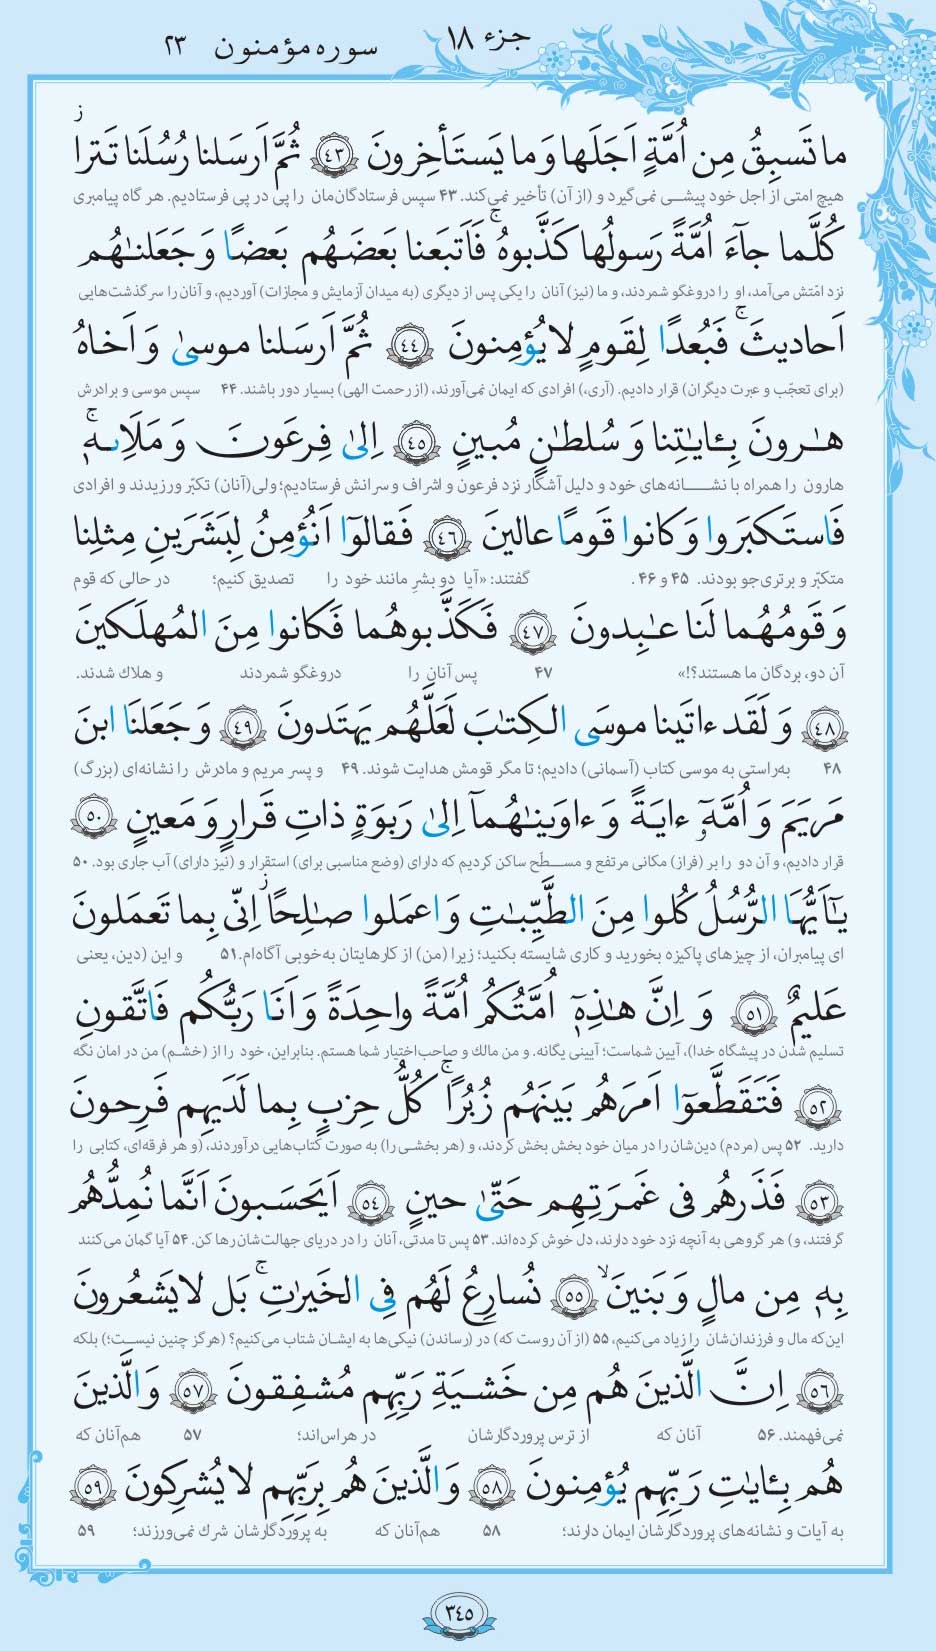 جزء ۱۸
سوره مؤمنون ۲۳
ما تَسبِقُ مِن اُمَّةٍ اَجَلَها وَ ما يَستَأخِرونَ ﴿٤٣﴾ ثُمَّ اَرسَلنا رُسُلَنا تَترا ز
هیچ امتی از اجل خود پیشی نمی‌گیرد و (از آن) تأخیر نمی‌کند. ۴۳ سپس فرستادگان‌مان را پی در پی فرستادیم. هر گاه پیامبری
كُلَّما جآءَ اُمَّةً رَسولُها كَذَّبوهُ ۚ فَاَتبَعنا بَعضَهُم بَعضًا وَ جَعَلنـٰهُم
نزد امّتش می‌آمد، او را دروغگو شمردند، و ما (نیز) آنان را یکی پس از دیگری (به میدان آزمایش و مجازات) آوردیم، و آنان را سرگذشت‌هایی
اَحاديثَ ۚ فَبُعدًا لِقَومٍ لا يُؤمِنونَ ﴿٤٤﴾ ثُمَّ اَرسَلنا موسىٰ وَ اَخاهُ
(برای تعجّب و عبرت دیگران) قرار دادیم. (آری،) افرادی که ایمان نمی‌آورند، (از رحمت الهی) بسیار دور باشند. ۴۴ سپس موسی و برادرش
هـٰرونَ بِـٔايـٰتِنا وَ سُلطـٰنٍ مُبينٍ ﴿٤٥﴾ اِلىٰ فِرعَونَ وَ مَلَاِيهٖ ۚ
هارون را همراه با نشانه‌های خود و دلیل آشکار نزد فرعون و اشراف و سرانش فرستادیم؛ ولی (آنان) تکبّر ورزیدند و افرادی
فَاستَكبَروا وَ كانوا قَومًا عالينَ ﴿٤٦﴾ فَقالوٓا اَنُؤمِنُ لِبَشَرَينِ مِثلِنا
متکبّر و برتری‌جو بودند. ۴۵ و ۴۶ . گفتند: «آیا دو بشرِ مانند خود را تصدیق کنیم؛ در حالی که قوم
وَ قَومُهُما لَنا عـٰبِدونَ ﴿٤٧﴾ فَكَذَّبوهُما فَكانوا مِنَ المُهلَكينَ
آن دو، بردگان ما هستند؟!» ۴۷ پس آنان را دروغگو شمردند و هلاك شدند.
﴿٤٨﴾ وَ لَقَد ءاتَينا موسَى الكِتـٰبَ لَعَلَّهُم يَهتَدونَ ﴿٤٩﴾ وَ جَعَلنَا ابنَ
۴۸ به‌راستی به موسی کتاب (آسمانی) دادیم؛ تا مگر قومش هدایت شوند. ۴۹ و پسر مریم و مادرش را نشانه‌ای (بزرگ)
مَريَمَ وَ اُمَّهٗٓ ءايَةً وَ ءاوَينـٰهُمآ اِلىٰ رَبوَةٍ ذاتِ قَرارٍ وَ مَعينٍ ﴿٥٠﴾
قرار دادیم، و آن دو را بر (فراز) مکانی مرتفع و مسطّح ساکن کردیم که دارای (وضع مناسبی برای) استقرار و (نیز دارای) آب جاری بود. ۵۰
يـٰٓاَيُّهَا الرُّسُلُ كُلوا مِنَ الطَّيِّبـٰتِ وَ اعمَلوا صـٰلِحًا ز اِنّى بِما تَعمَلونَ
ای پیامبران، از چیزهای پاکیزه بخورید و کاری شایسته بکنید؛ زیرا (من) از کارهایتان به‌خوبی آگاه‌ام. ۵۱ و این (دین، یعنی
عَليمٌ ﴿٥١﴾ وَ اِنَّ هـٰذِهٖٓ اُمَّتُكُم اُمَّةً واحِدَةً وَ اَنَا رَبُّكُم فَاتَّقونِ
تسلیم شدن در پیشگاه خدا)، آیین شماست؛ آیینی یگانه. و من مالك و صاحب‌اختیار شما هستم. بنابراین، خود را از (خشم) من در امان نگه
﴿٥٢﴾ فَتَقَطَّعوٓا اَمرَهُم بَينَهُم زُبُرًا ۚ كُلُّ حِزبٍ بِما لَدَيهِم فَرِحونَ
دارید. ۵۲ پس (مردم) دین‌شان را در میان خود بخش بخش کردند، و (هر بخشی را) به صورت کتاب‌هایی درآوردند، (و هر فرقه‌ای، کتابی را
﴿٥٣﴾ فَذَرهُم فى غَمرَتِهِم حَتّىٰ حينٍ ﴿٥٤﴾ اَيَحسَبونَ اَنَّما نُمِدُّهُم
گرفتند، و) هر گروهی به آنچه نزد خود دارند، دل خوش کرده‌اند. ۵۳ پس تا مدتی، آنان را در دریای جهالت‌شان رها کن. ۵۴ آیا گمان می‌کنند
بِهٖ مِن مالٍ وَ بَنينَ ۙ ﴿٥٥﴾ نُسارِعُ لَهُم فِى الخَيرٰتِ ۚ بَل لا يَشعُرونَ
این‌که مال و فرزندان‌شان را زیاد می‌کنیم، ۵۵ (از آن روست که) در (رساندن) نیکی‌ها به ایشان شتاب می‌کنیم؟ (هرگز چنین نیست؛) بلکه
﴿٥٦﴾ اِنَّ الَّذينَ هُم مِن خَشيَةِ رَبِّهِم مُشفِقونَ ﴿٥٧﴾ وَالَّذينَ
نمی‌فهمند. ۵۶ آنان که از ترس پروردگارشان در هراس‌اند؛ ۵۷ هم‌آنان که
هُم بِـٔايـٰتِ رَبِّهِم يُؤمِنونَ ﴿٥٨﴾ وَالَّذينَ هُم بِرَبِّهِم لا يُشرِكونَ ﴿٥٩﴾
به آیات و نشانه‌های پروردگارشان ایمان دارند؛ ۵۸ هم‌آنان که به پروردگارشان شرك نمی‌ورزند؛ ۵۹
۳۴۵